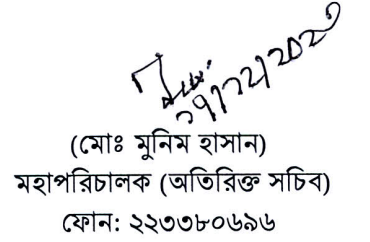 ২৭/১২/২০২৩
(মোঃ মুনিম হাসান)
মহাপরিচালক (অতিরিক্ত সচিব)
ফোন: ২২৩৩৮০৬৯৬